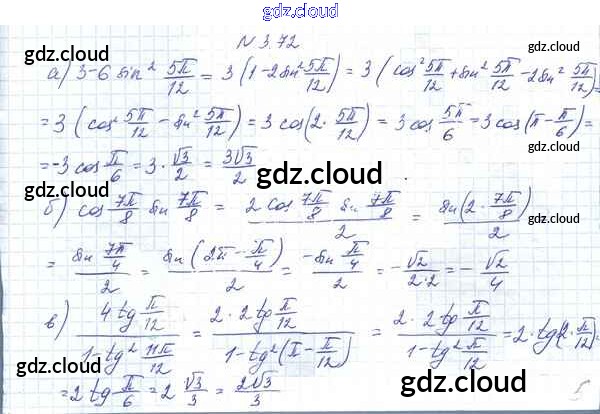 gdz.cloud
N 3.72
gdz.cloud gdz.cloud gdz.cloud
а) 3-6 sin² 5π/12 = 3(1-2sin² 5π/12) = 3(cos² 5π/12 + sin² 5π/12 - 2sin² 5π/12) =
= 3(cos² 5π/12 - sin² 5π/12) = 3cos(2· 5π/12) = 3cos 5π/6 = 3cos(π - π/6) =
= -3cos π/6 = 3· √3/2 = 3√3/2
gdz.cloud gdz.cloud gdz.cloud
б) cos 7π/8 sin 7π/8 = 2cos 7π/8 sin 7π/8 / 2 = sin(2· 7π/8) / 2
= sin 7π/4 / 2 = sin(2π - π/4) / 2 = -sin π/4 / 2 = - √2/2·2 = - √2/4
в) 4tg π/12 / 1-tg² 11π/12 = 2·2tg π/12 / 1-tg²(π - π/12) = 2·2tg π/12 / 1-tg² π/12 = 2·tg(2· π/12) =
gdz.cloud gdz.cloud gdz.cloud
= 2tg π/6 = 2 √3/3 = 2√3/3